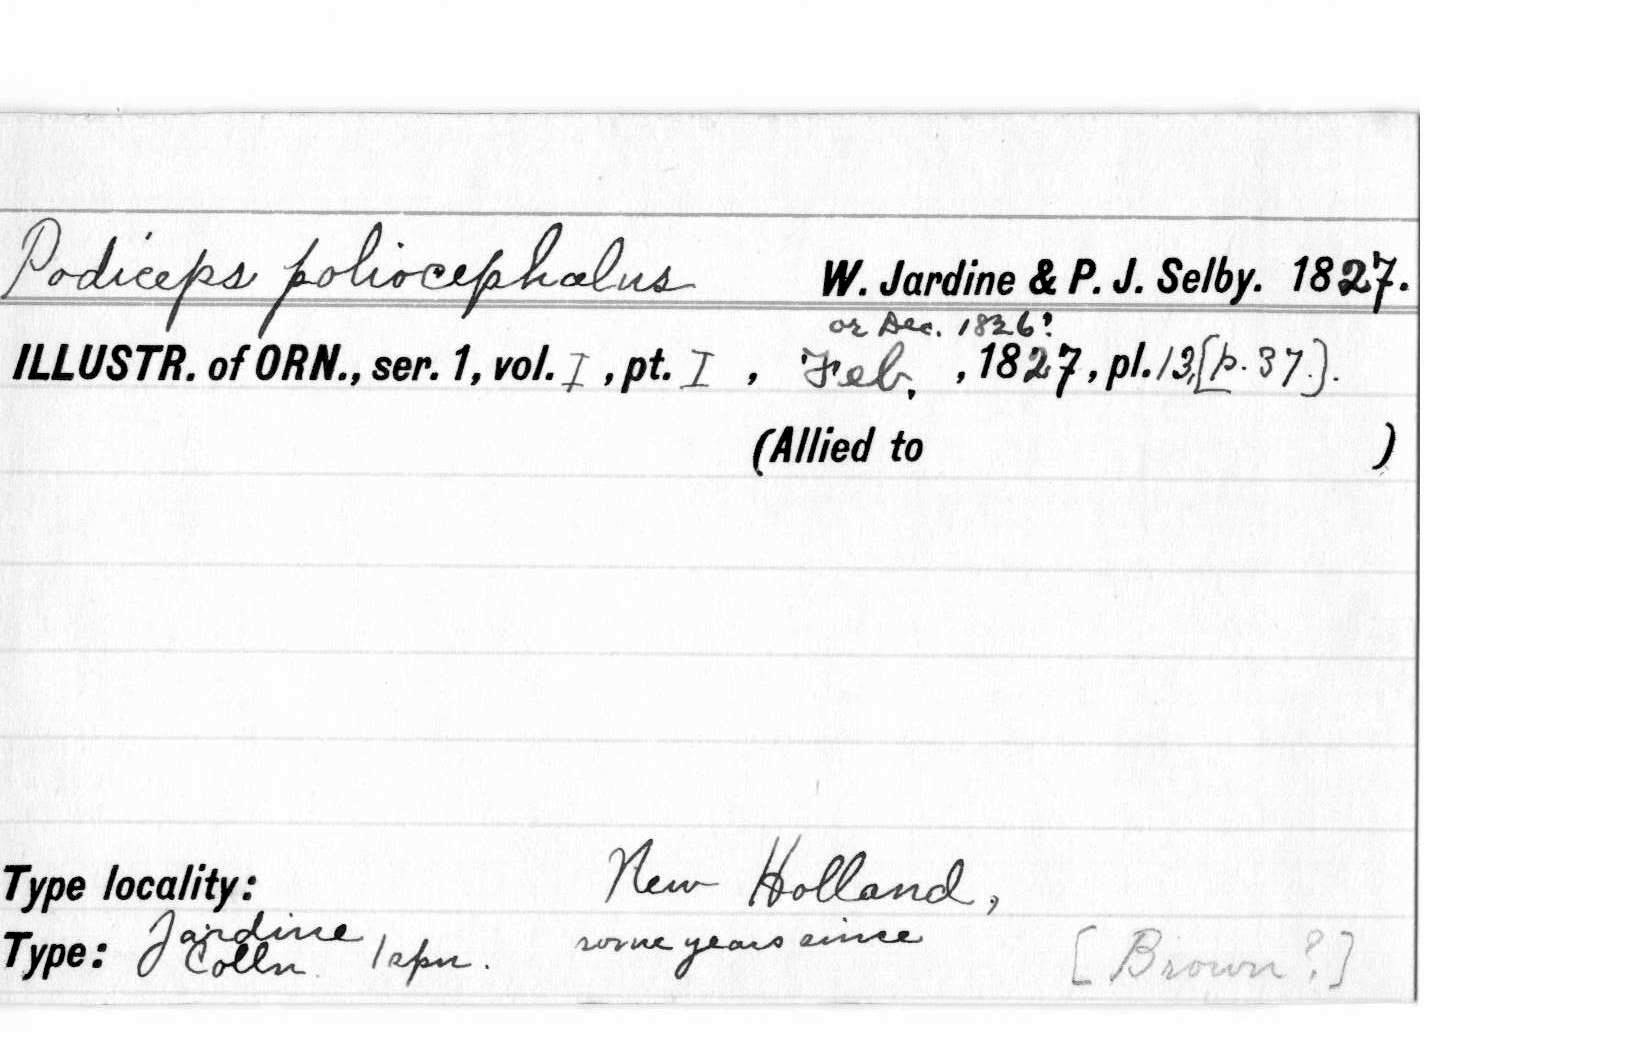 Podiceps poliocephalus W. Jardine & P. J. Selby. 1827.
or Dec. 1826?
ILLUSTR. of ORN., ser. 1, vol. I , pt. I , Feb. , 1827, pl. 13, [p. 37.].
(Allied to )
Type locality: New Holland,
Type: Jardine Colln. 1 spn. some years since [Brown?]